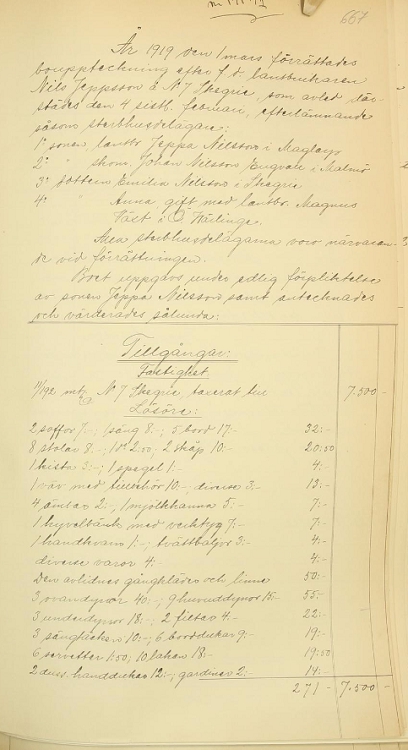 667
År 1919 den 1 mars förrättades
bouppteckning efter f.d. lantbrukaren
Nils Jeppsson å N 7 Skegrie, som avled där-
städes den 4 sistl. februari, efterlämnande
såsom sterbhusdelägare:
1° sonen, lantbr. Jeppa Nilsson i Maglarp
2° " skom. Johan Nilsson Engvall i Malmö
3° dottern Emilia Nilsson i Skegrie
4° " Anna gift med lantbr. Magnus
Väst i Ö. Värlinge.
Alla sterbhusdelägarna voro närvaran-
de vid förrättningen.
Boet uppgavs under edlig förpliktelse
av sonen Jeppa Nilsson samt antecknades
och värderades sålunda:
Tillgångar:
Fastighet
11/192 mtl N 7 Skegrie, taxerat till 7.500 -
Lösöre:
2 soffor 7:-; 1 säng 8:-; 5 bord 17:- 32:-
8 stolar 8:-; 1 2:50; 2 skåp 10:- 20:50
1 kista 3:-; 1 spegel 1:- 4:-
1 väv med tillbehör 10:-; diverse 3:- 13:-
4 ämbar 2:-; 1 mjölkkanna 5:- 7:-
1 hyvelbänk med verktyg 7:- 7:-
1 handkvarn 1:-; tvättbaljor 3:- 4:-
diverse varor 4:- 4:-
Den avlidnes gångkläder och linne 50:-
3 ovandynor 40:-; 9 huvuddynor 15:- 55:-
3 underdynor 18:-; 2 filtar 4:- 22:-
3 sängtäcken 10:-; 6 borddukar 9:- 19:-
6 servetter 1:50; 10 lakan 18:- 19:50
2 duss. handdukar 12:-; gardiner 2:- 14:-
271 - 7.500 -